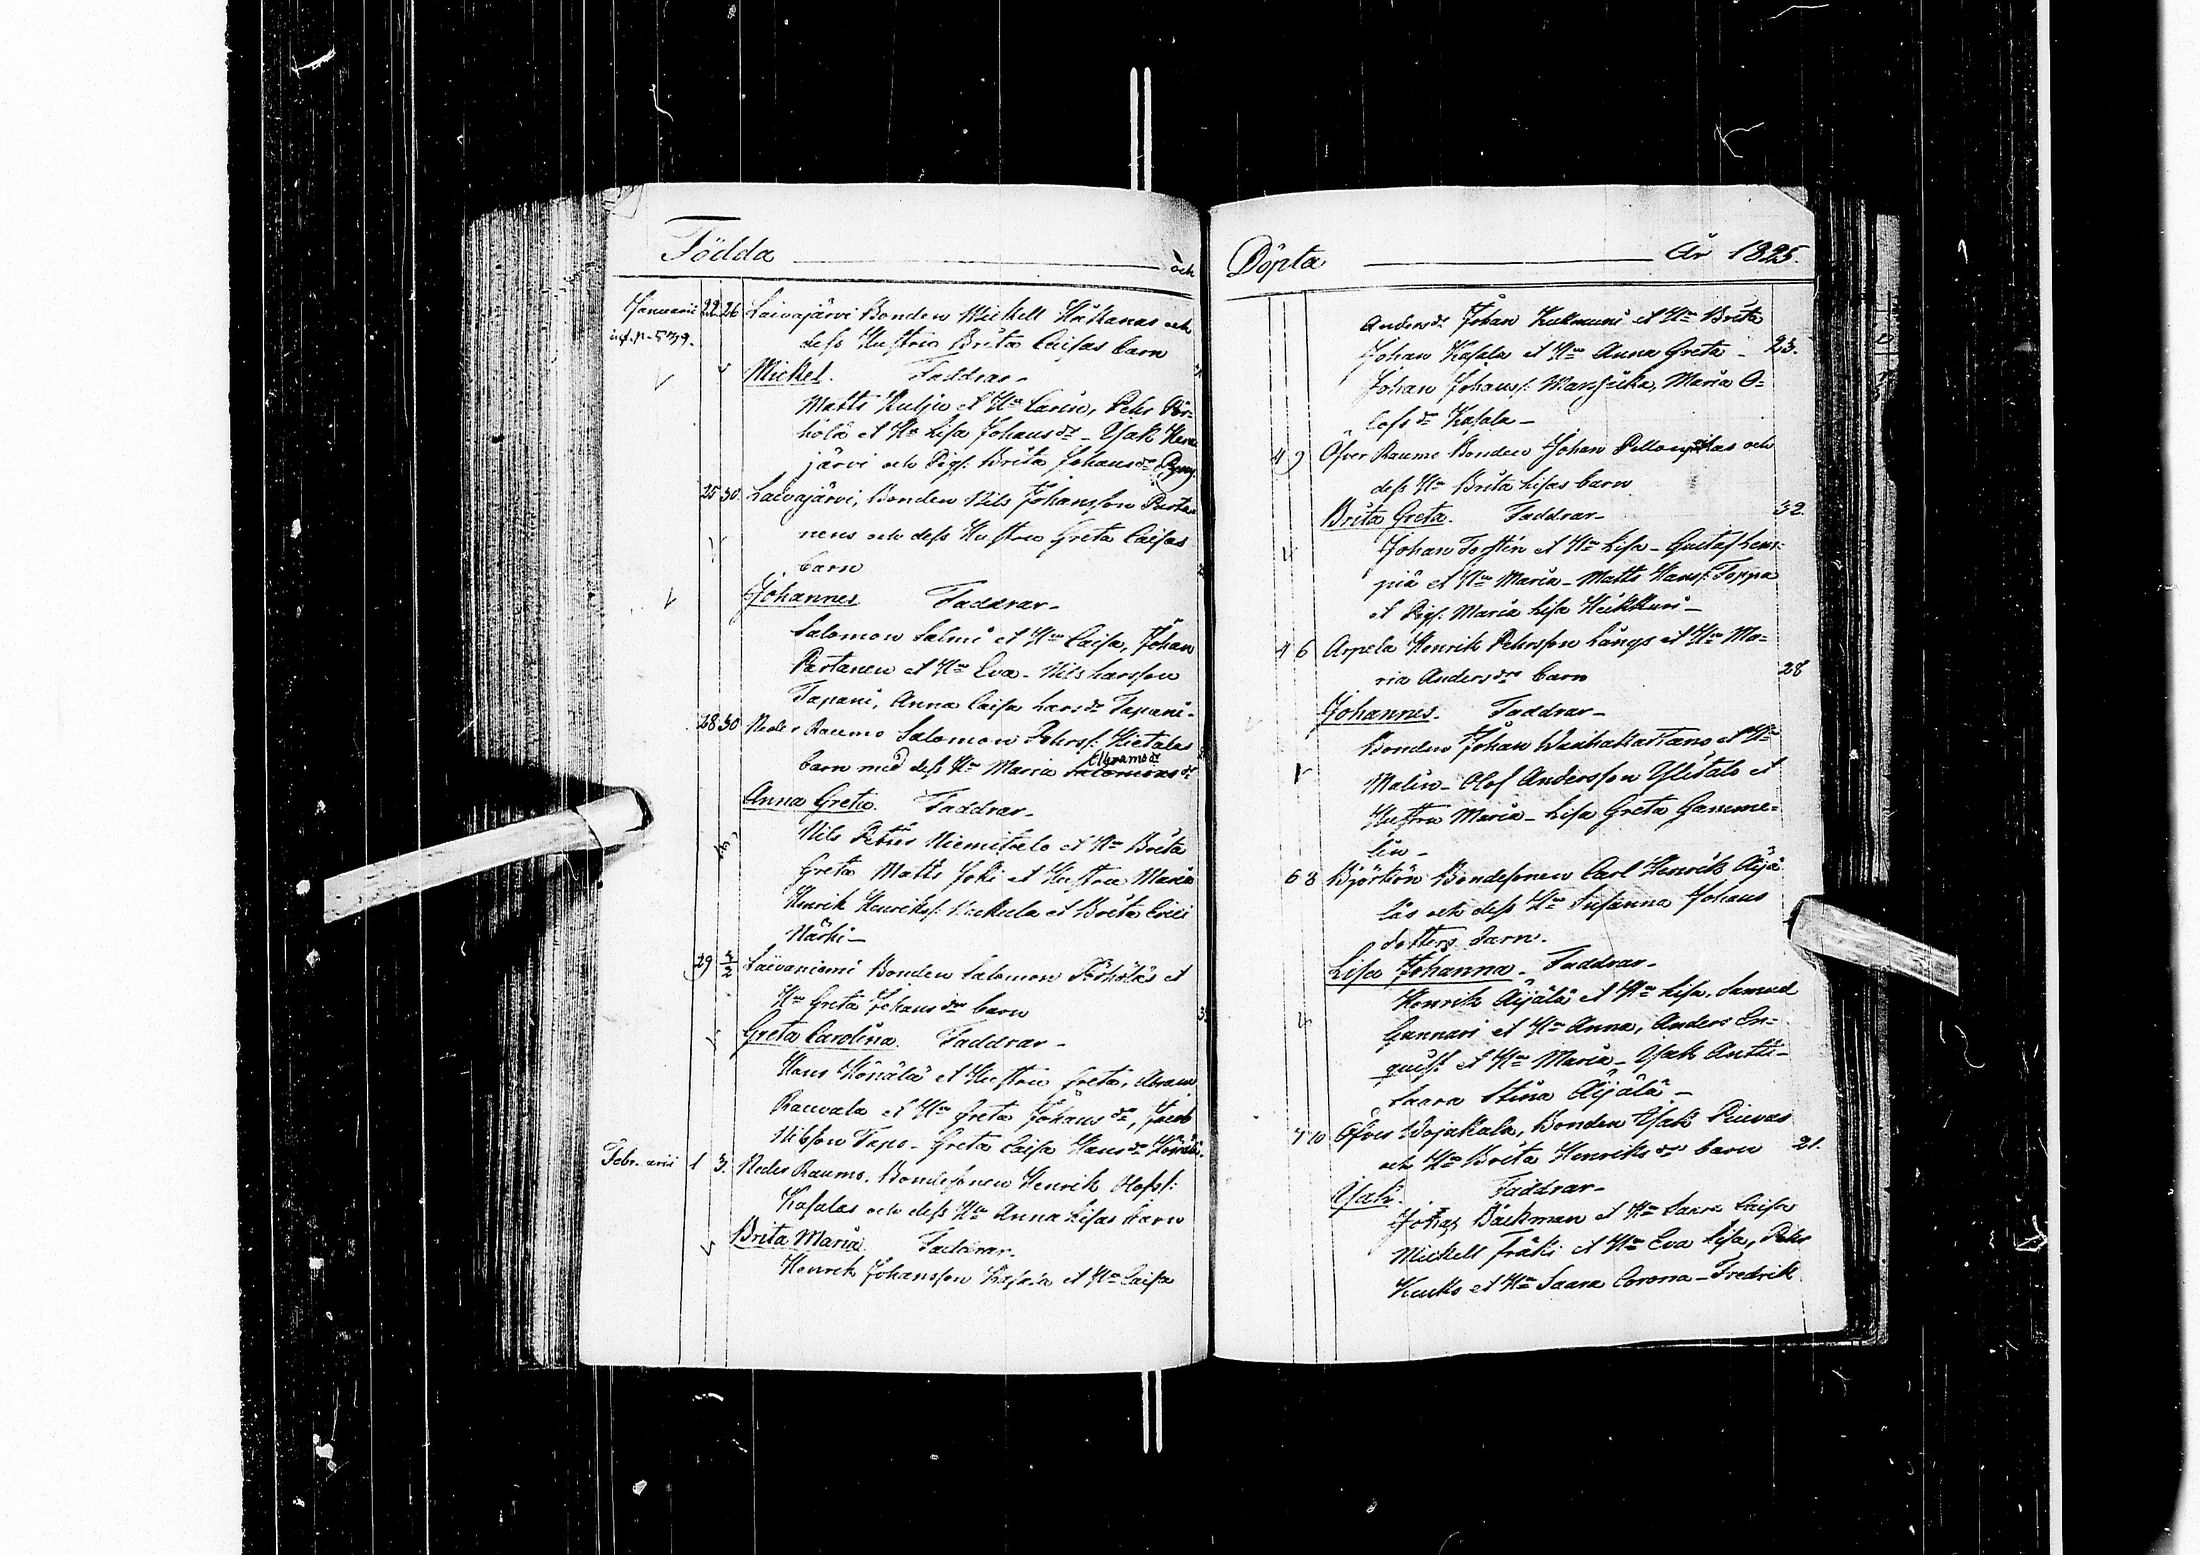 Födda och
Januarii 22 26 Laivajärvi Bonden Mickell Håkanas och
dess Hustru Brita Caisas barn
Mickel. Faddrar-
Matts Kulju et Hu Carin, Pehr Pör-
hölä et Hu Lisa Johansdr - Isak
järvi och Pigs. Brita Johansdr
25 30 Laivajärvi, Bonden Nils Johansson Parta
nens och dess Hustru Greta Caisas
barn
Johannes Faddrar-
Salomon Salmi et Hu Caisa, Johan
Partanen et Hu Eva - Nils Larsson
Tapani, Anna Caisa Larsdr Tapani-
28 30 Neder Raumo Salomon Pehrss: Hietalas
barn med dess Hu Maria Salomonsdr
Abramsdr
Anna Greta. Faddrar-
Nils Petter Niemitalo et Hu Brita
Greta Matts Joki et Hustru Maria
Henrik Henrikss: et Brita
Närhi-
29 3/2 Laivaniemi Bonden Salomon Pörhöläs et
Hu Greta Johansdrs barn
Greta Carolina. Faddrar-
Hans Könölä et Hustru Greta, Abram
Rauvala et Hu Greta Johansdr, Jacob
Nilsson Tapo - Greta Caisa Hansdr
Februarii 1 3. Neder Raumo. Bondesonen Henrik Olofss:
Kasalas och dess Hu Anna Lisas barn
Brita Maria Faddrar.
Henrik Johansson Kasala et Hu Caisa
Döpta År 1825.
Andersdr Johan Kukmuni et Hu Brita
Johan Kasala et Hu Anna Greta - 23.
Johan Johanss: Maria O-
lofsdr Kasala-
4 9 Öfver Raumo Bonden Johan och
dess Hu Brita Lisas barn
Brita Greta. Faddrar- 32.
Johan Torsten et Hu Lisa - Gustaf Lem-
piä et Hu Maria - Matts Hanss: Toppa
et Pigs. Maria Lisa Heikkuri-
4 6 Arpela Henrik Pehrsson Långs et Hu Ma-
ria Andersdrs barn 28
Johannes. Faddrar-
Bonden Johan Wanhakartano et Hu
Malin - Olof Andersson Ylitalo et
Hustru Maria - Lisa Greta Gamme-
lin-
6 8 Björkön Bondesonen Carl Henrik Äijä
läs och dess Hu Susanna Johans
dotters barn.
Lisa Johanna - Faddrar-
Henrik Äijälä et Hu Lisa, Samuel
Gunnari et Hu Anna, Anders En-
quist et Hu Maria - Isak Antti-
Saara Stina Äijälä-
7 10 Öfver Wojakala, Bonden Isak
och Hu Brita Henriksdrs barn 21.
Isak. Faddrar-
Johan Bäckman et Hu Saara Caisa
Mickell Fräki et Hu Eva Lisa, Pehr
Kuuks et Hu Saara Corona - Fredrik